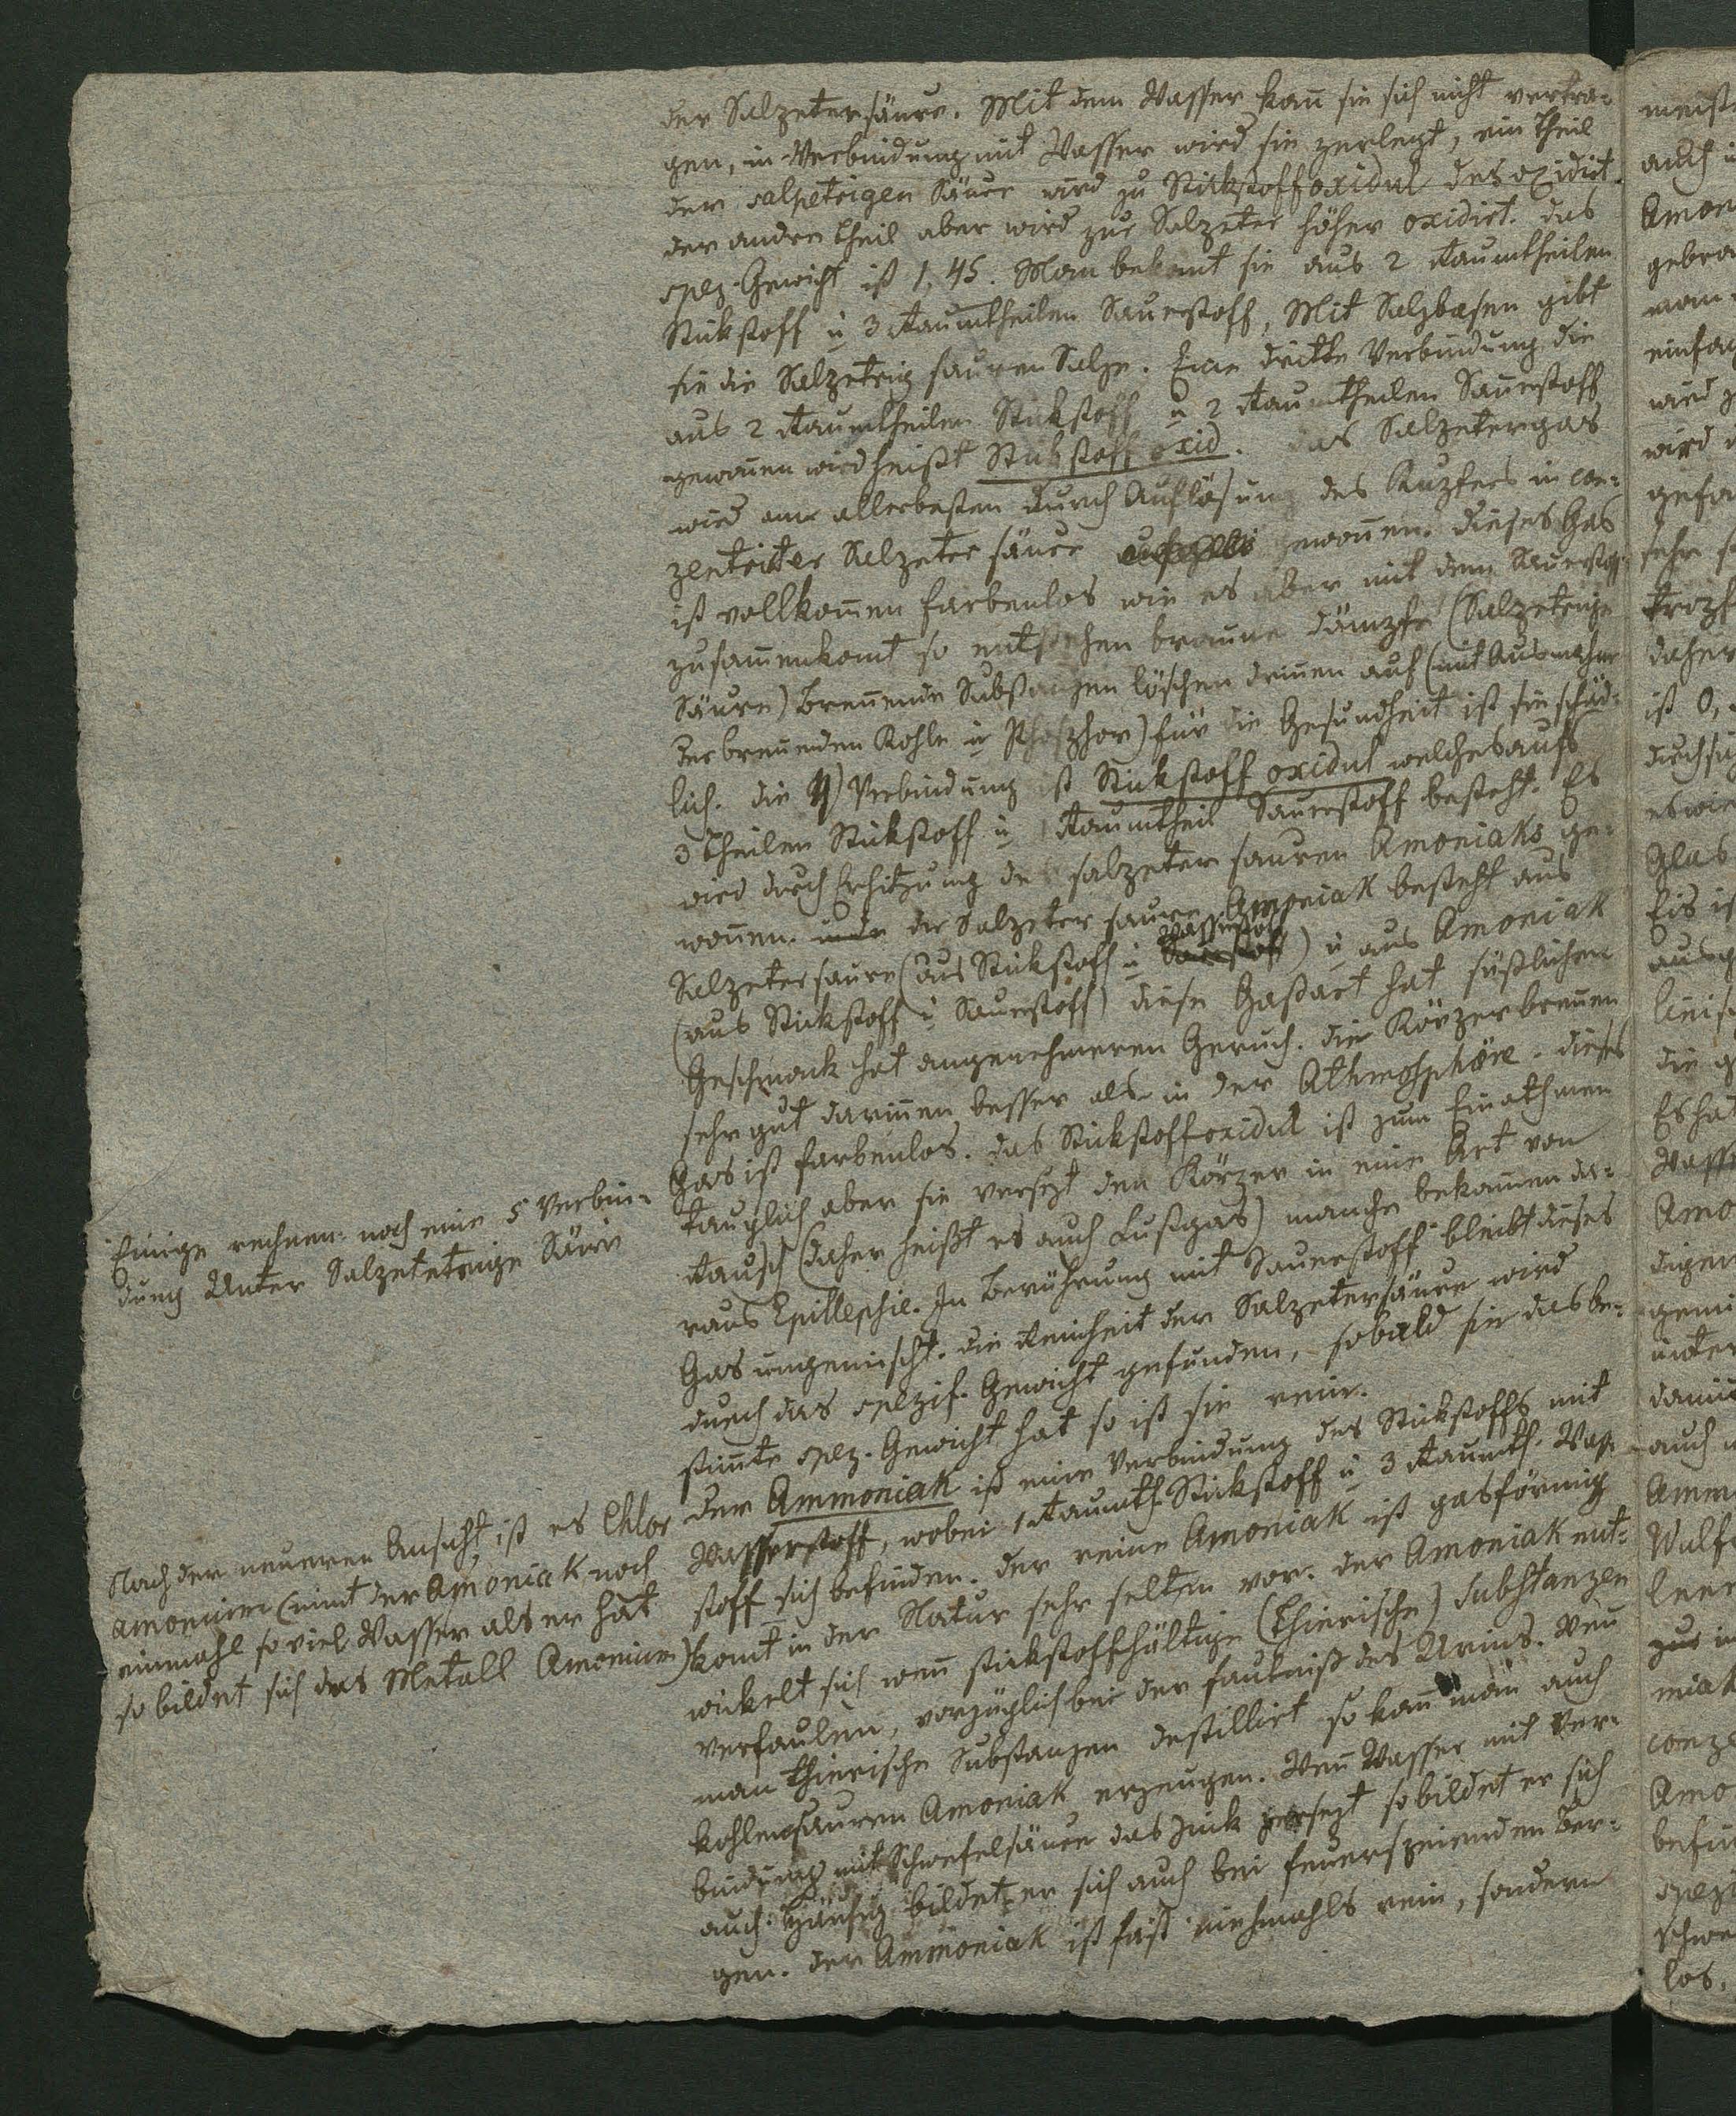 der Salpetersäure. Mit dem Wasser kan̄ sie sich nicht vertra-
gen, in Verbindung mit Wasser wird sie zerlegt, ein Theil
der salpetrigen Säure wird zu Stickstoffoxidul desoxidirt.
der andre Theil aber wird zur Salpeter höher oxidirt. das
spez. Gewicht ist 1,45. Man bekomt sie aus 2 Raumtheilen
Stickstoff u 3 Raumtheilen Sauerstoff, Mit Salzbasen gibt
sie die Salpetrig sauren Salze. Eine dritte Verbindung die
aus 2 Raumtheilen Stickstoff u 2 Raumtheilen Sauerstoff
gewon̄en wird heißt Stickstoffoxid. das Salpetergas
wird am allerbesten durch Auflösung des Kupfers in con-
zentriter Salpetersäure gewon̄en. dieses Gas
ist vollkom̄en farbenlos wie es aber mit dem Sauerstoff
zusam̄enkomt so entstehen braune Dämpfe (Salpetrige
Säure) Bren̄ende Substanzen löschen drin̄en auß (mit Ausnahme
der bren̄enden Kohle u Phosphor) für die Gesundheit ist sie schäd-
lich. die 4) Verbindung ist Stickstoff oxidul welches aufs
3 Theilen Stickstoff u 1 Raumtheil Sauerstoff besteht. Es
wird durch Erhitzung des salpeter sauren Amoniaks ge-
won̄en. der Salpeter saure Amoniak besteht aus
Wasserstoff
Salpetersaure (aus Stickstoff u Sauerstoff) u aus Amoniak
(aus Stickstoff u Sauerstoff) diese Gaßart hat süßlichen
Geschmack hat angenehmeren Geruch. die Körper bren̄en
sehr gut darin̄en besser als in der Athmosphäre. dieses
Gas ist farbenlos. das Stickstoffoxidul ist zum Einathmen
tauglich aber sie versezt den Körper in eine Art von
Rausch (daher heißt es auch Lustgas) manche bekom̄en da-
raus Epillepsie. In Berührung mit Sauerstoff bleibt dieses
Gas ungemischt. die Reinheit der Salpetersäure wird
durch das spezif. Gewicht gefunden, sobald sie das be-
stim̄te spez. Gewicht hat so ist sie rein.
Der Ammoniak ist eine Verbindung des Stickstoffs mit
Wasserstoff, wobei 1 Raumth. Stickstoff u 3 Raumth. Was-
stoff sich befinden. der reine Amoniak ist gasförmig
komt in der Natur sehr selten vor. der Amoniak ent-
wickelt sich wen̄ stickstoffhältige (thierische) Substanzen
verfaulen, vorzüglich bei der Faulniß des Urins. Wen̄
man thierische Substanzen destillirt so kan̄ man auch
kohlensauren Amoniak erzeugen. Wen̄ Wasser mit Ver-
bindung mit Schwefelsäure das Zink zersezt so bildet er sich
auch. Häufig bildet er sich auch bei feuerspeienden Ber-
gen. der Ammoniak ist fast niehmahls rein, sondern
Einige rechnen noch eine 5 Verbin-
dung Unter Salpetetrige Säure
Nach der neueren Ansicht ist es Chlor
amonium (nimt der Amoniak noch
einmahl so viel Wasser als er hat
so bildet sich das Metall Amonium)